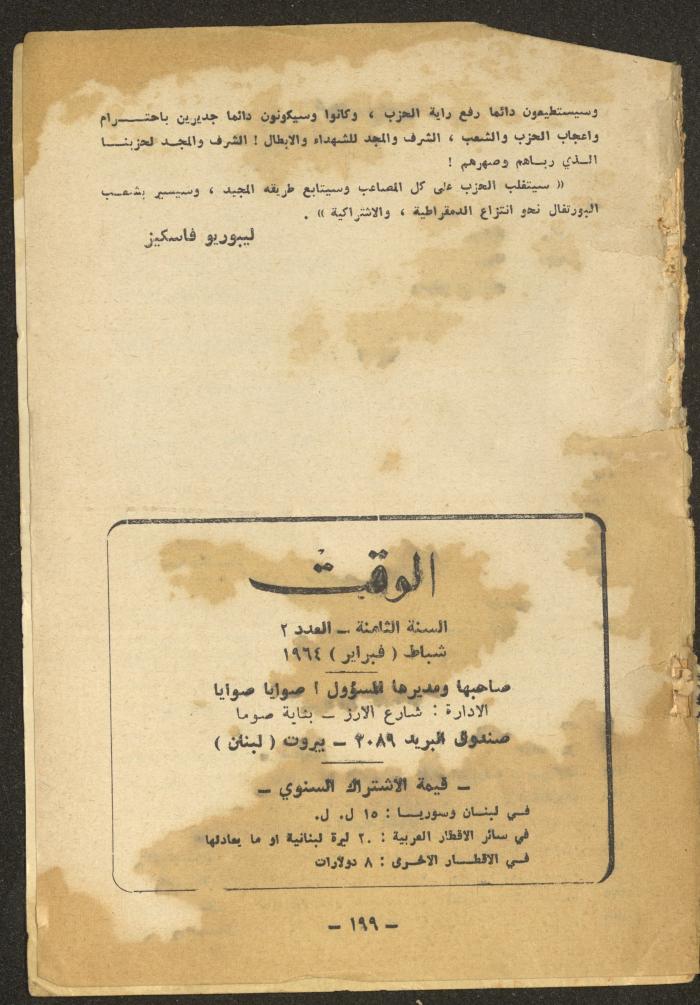 وسيستطيعون دائما رفع راية الحزب ، وكانوا وسيكونون دائما جديرين باحتـــرام
واعجاب الحزب والشعب ، الشرف والمجد للشهداء والابطال ! الشرف والمجـد لحزبنــا
الـذي ربـاهم وصهرهم !
« سيتقلب الحزب على كل المصاعب وسيتابع طريقه المجيد ، وسيسير بشعـب
البورتقال نحو انتزاع الدمقراطية ، والاشتراكية » .
ليبوريو فاسكيز
الوقت
السنة الثامنة ــ العدد ٢
شباط ( فبراير ) ١٩٦٤
صاحبها ومديرها المسؤول : صوايا صوايا
الادارة : شارع الارز ــ بناية صوما
صندوق البريد ٣٠٨٩ ــ بيروت ( لبنان )
ــ قيمة الاشتراك السنوي ــ
فـي لبنـان وسوريـا : ١٥ ل. ل.
في سائر الاقطار العربية : ٢٠ ليرة لبنانية او ما يعادلها
فـي الاقطــار الاخرى : ٨ دولارات
ــ ١٩٩ ــ